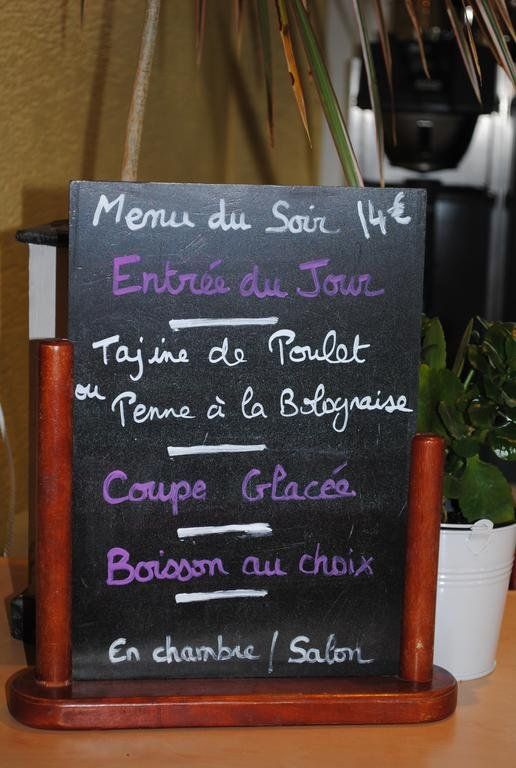 Menu du Soir 14€
Entrée du Jour
Tajine de Poulet
ou Penne à la Bolognaise
Coupe Glacée
Boisson au choix
En chambre / Salon